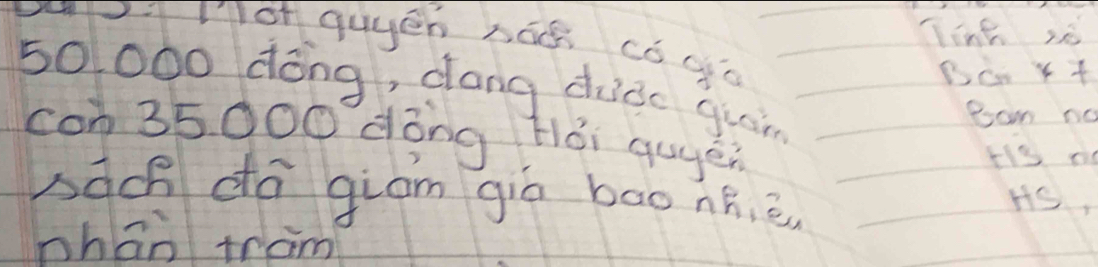 Bài 3: Một quyển sách có giá
50.000 đồng, đang được giảm
còn 35.000 đồng Hỏi quyển
sách đã giảm giá bao nhiêu
phần trăm
Tính số
Bạn
HS
HS